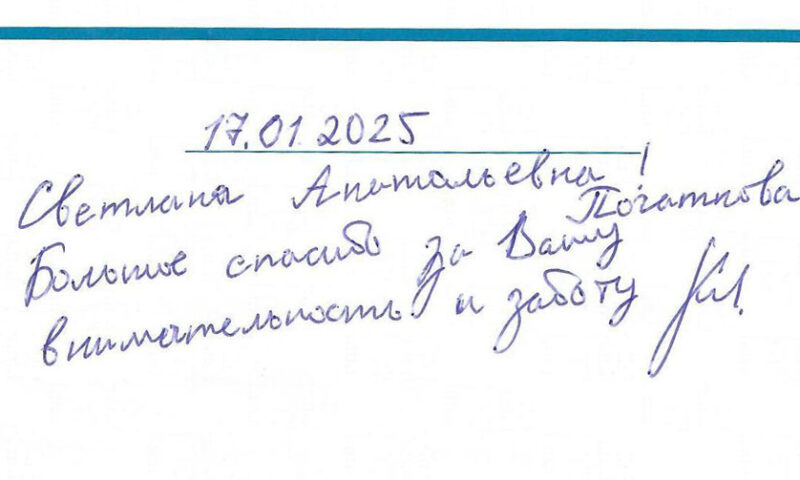 17.01.2025
Светлана Анатольевна!
Початкова
Большое спасибо за Вашу
внимательность и заботу